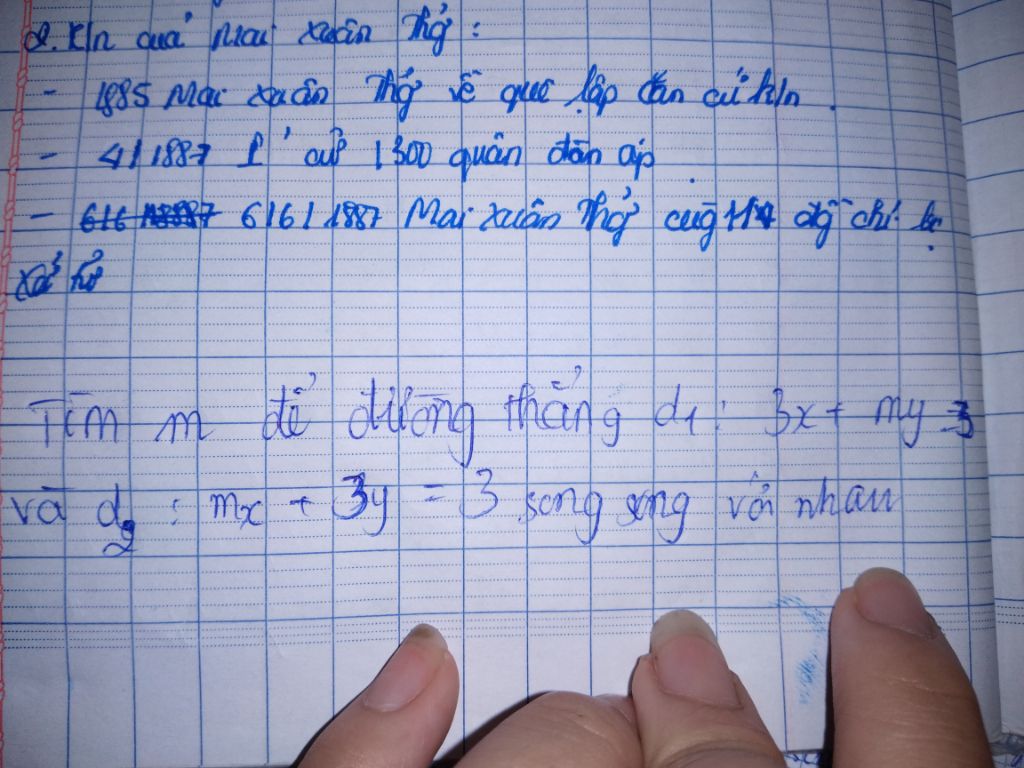 2. K/n của Mai Xuân Thưởng :
- 1885 Mai Xuân Thưởng về quê lập căn cứ k/n .
- 4/1887 P' cử 1300 quân đàn áp .
- 6/6/1887 Mai Xuân Thưởng cùng 11 đ/c chí bị
xử tử
Tìm m để đường thẳng d1 : 3x + my = 3
và d2 : mx + 3y = 3 song song với nhau